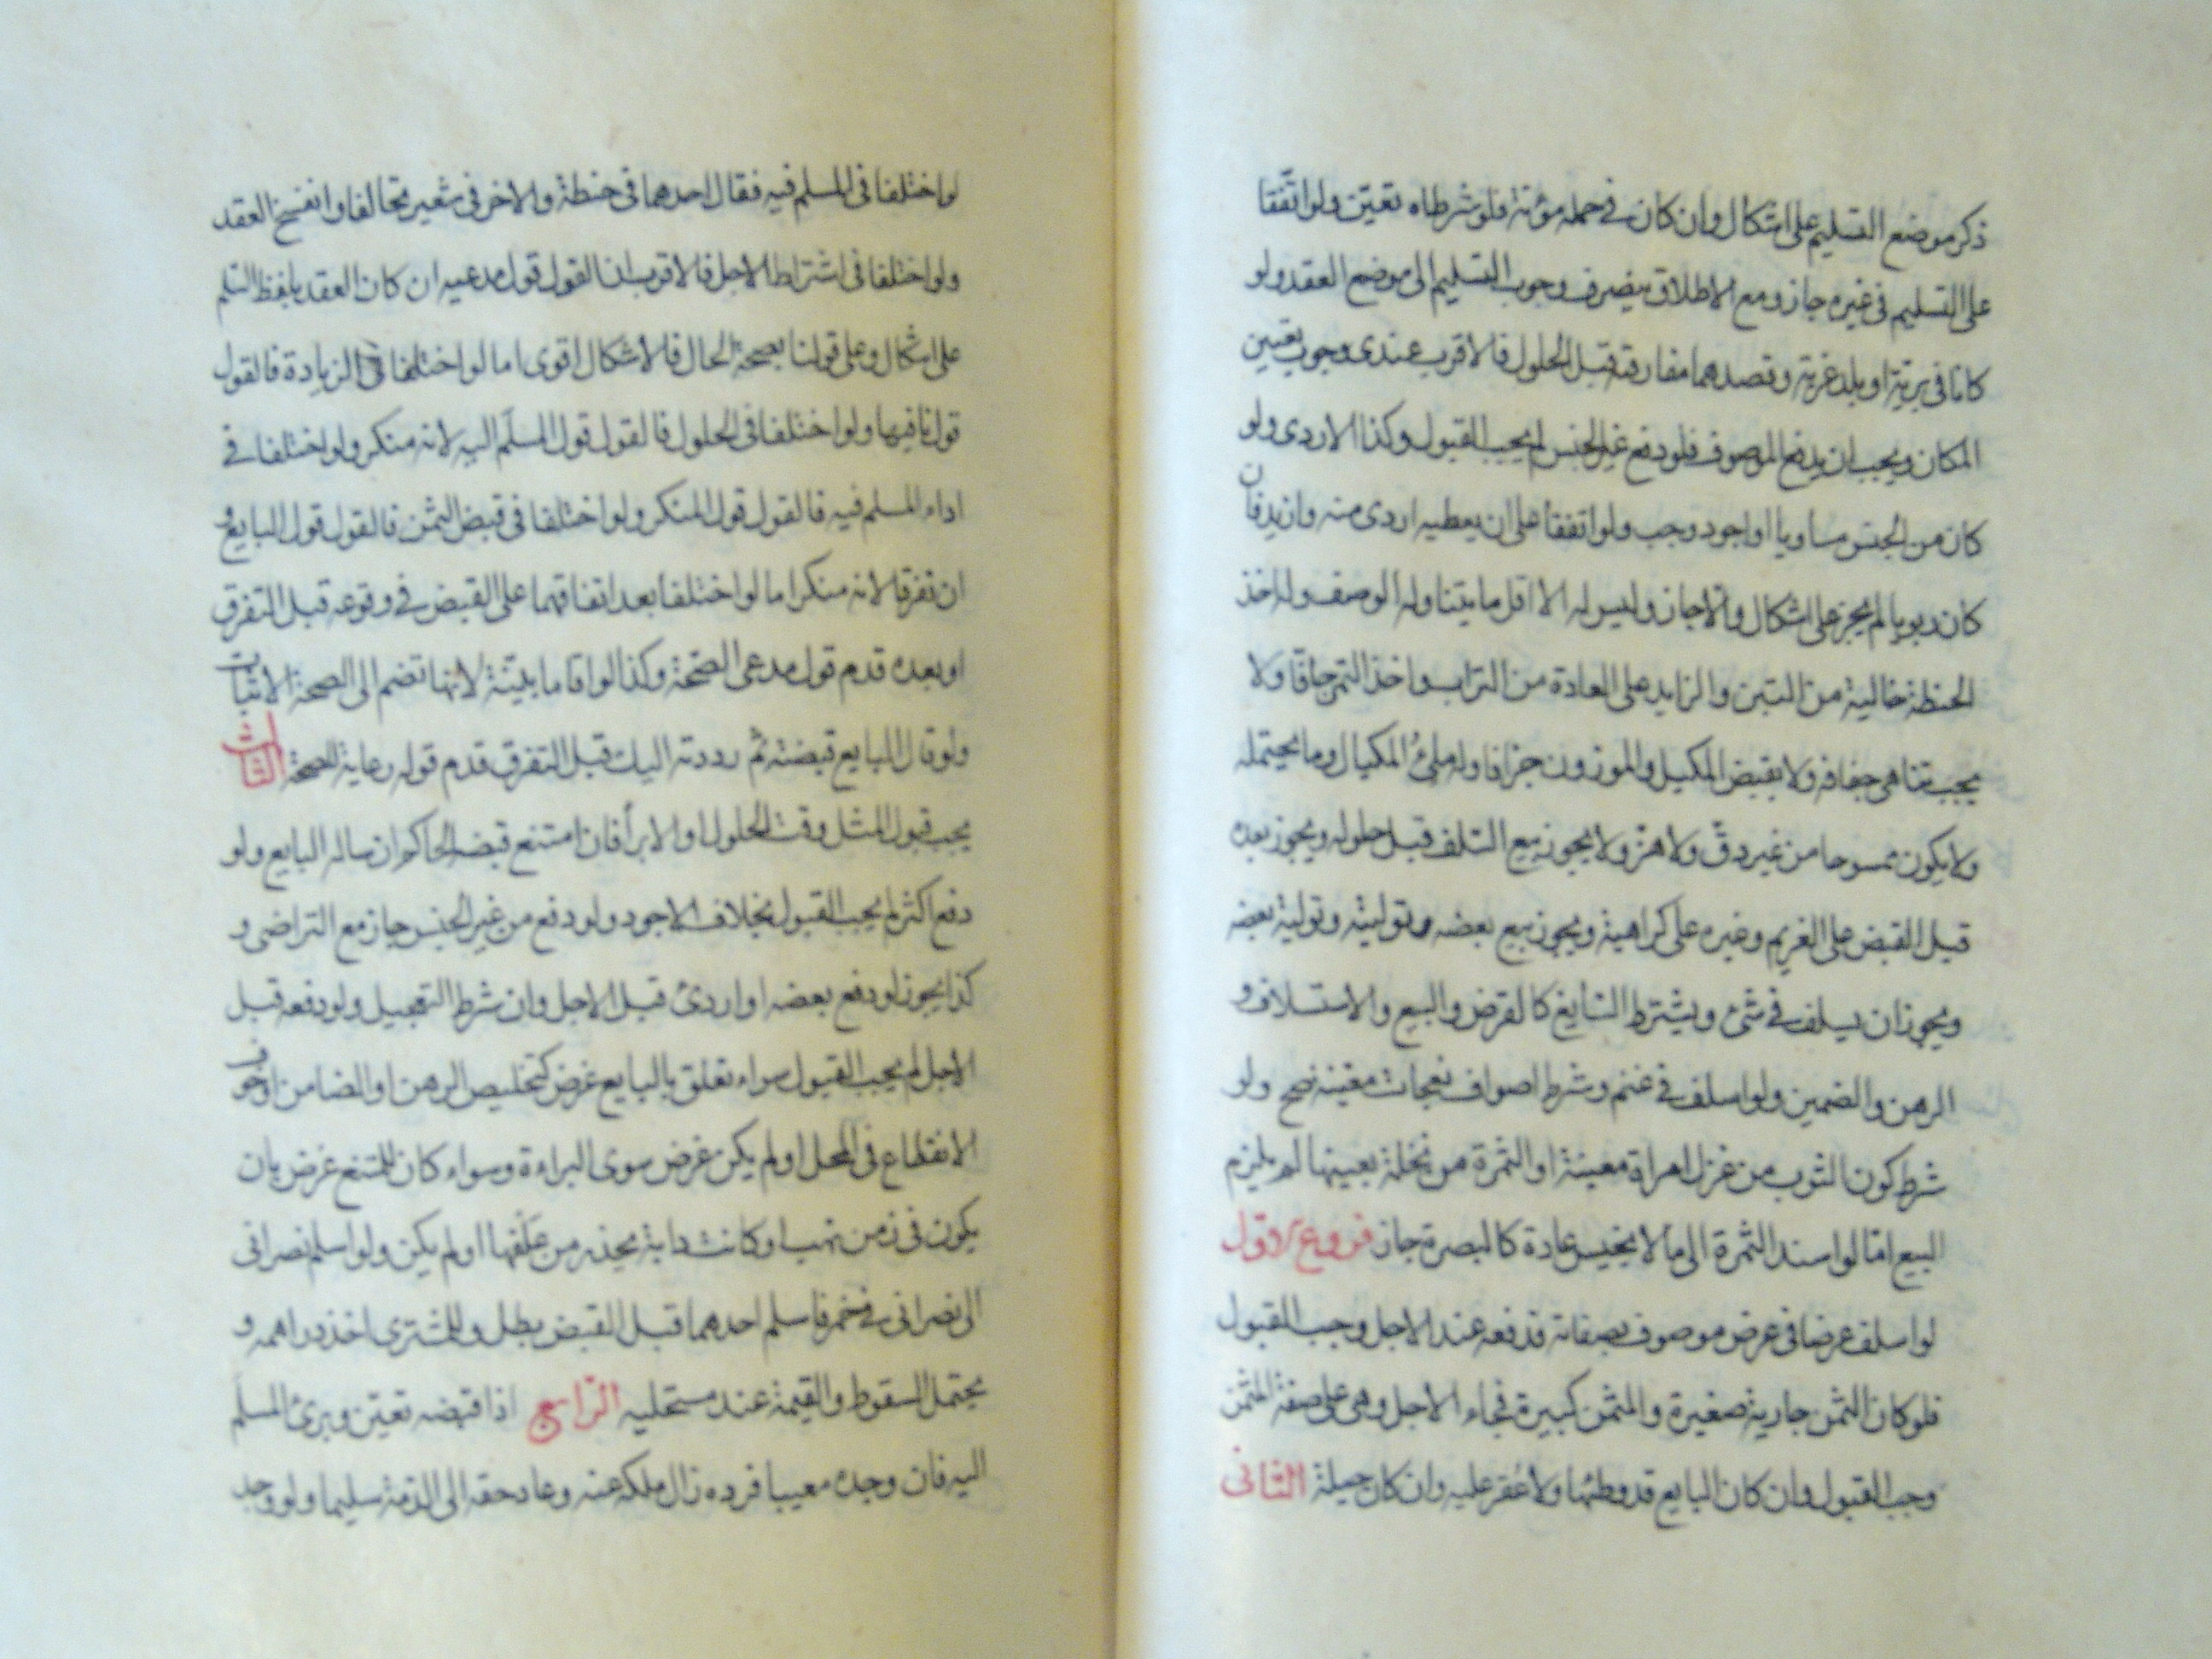 ذكر موضع التسليم على اشكال وان كان في حمله مؤنة فلو شرطاه تعين ولو اتّفقا
على التسليم فى غيره جاز ومع الاطلاق ينصرف وجوب التسليم الى موضع العقد ولو
كانا فى برية او بلد غربة وقصدهما مفارقته قبل الحلول فالاقرب عندى وجوب تعيين
المكان ويجب ان يدفع الموصوف فلو دفع غير الجنس لم يجب القبول وكذا الاردى ولو
كان من الجنس مساويا او اجود وجب ولو اتفقا على ان يعطيه اردى منه وازيد فان
كان ربويا لم يجز على اشكال والا جاز وليس له الا اقل ما يتناوله الوصف وله اخذ
الحنطة خالية من التبن والزايد على العادة من التراب واخذ التمر جافا ولا
يجب تناهى جفافه ولا يقبض المكيل والموزون جزافا وله ملئ المكيال وما يحتمله
ولا يكون ممسوحا من غير دق ولا هز ولا يجوز بيع السلف قبل حلوله ويجوز بعده
قبل القبض على الغريم وغيره على كراهية ويجوز بيع بعضه وتوليته وتولية بعضه
ويجوز ان يسلف في شئ ويشترط السايغ كالقرض والبيع والاستسلاف و
الرهن والضمين ولو اسلف في غنم وشرط اصواف نعجات معينة صح ولو
شرط كون الثوب من غزل امراة معينة او الثمرة من نخلة بعينها لم يلزم
البيع امّا لو اسند الثمرة الى ما لا يخيس عادة كالبصرة جاز فروع الاول
لو اسلف عرضا فى عرض موصوف بصفاته فدفعه عند الاجل وجب القبول
فلو كان الثمن جارية صغيرة والمثمن كبيرة فجاء الاجل وهى على صفة المثمن
وجب القبول وان كان البايع قد وطئها ولا عُقر عليه وان كان حيلة الثانى
لو اختلفا فى المسلم فيه فقال احدهما فى حنطة والاخر فى شعير تحالفا وانفسخ العقد
ولو اختلفا فى اشتراط الاجل فالاقرب ان القول قول مدعيه ان كان العقد بلفظ السلم
على اشكال وعلى قولنا بصحة الحال فالاشكال اقوى اما لو اختلفا فى الزيادة فالقول
قول نافيها ولو اختلفا فى الحلول فالقول قول المسلَم اليه لانه منكر ولو اختلفا فى
اداء المسلم فيه فالقول قول المنكر ولو اختلفا فى قبض الثمن فالقول قول البايع و
ان تفرقا لانه منكر اما لو اختلفا بعد اتفاقهما على القبض في وقوعه قبل التفرق
او بعده قدم قول مدعى الصّحة وكذا لو اقاما بينة لانها تضم الى الصحة الاثبات
ولو قال البايع قبضته ثم رددته اليك قبل التفرق قدم قوله رعاية للصحة الثالث
يجب قبول المثل وقت الحلول او الابرأ فان امتنع قبضه الحاكم ان ساله البايع ولو
دفع اكثر لم يجب القبول بخلاف الاجود ولو دفع من غير الجنس جاز مع التراضى و
كذا يجوز لو دفع بعضه او اردئ قبل الاجل وان شرط التعجيل ولو دفعه قبل
الاجل لم يجب القبول سواء تعلق بالبايع غرض كتخليص الرهن او الضامن او خوف
الانقطاع فى المحل او لم يكن غرض سوى البراءة وسواء كان للممتنع غرض بان
يكون فى زمن نهب او كانت دابة يحذر من علفها او لم يكن ولو اسلم نصرانى
الى نصرانى في خمر فاسلم احدهما قبل القبض بطل وللمشترى اخذ دراهمه و
يحتمل السقوط والقيمة عند مستحليه الرّابع اذا قبضه تعين وبرئ المسلَم
اليه فان وجده معيبا فرده زال ملكه عنه وعاد حقه الى الذمة سليما ولو وجد